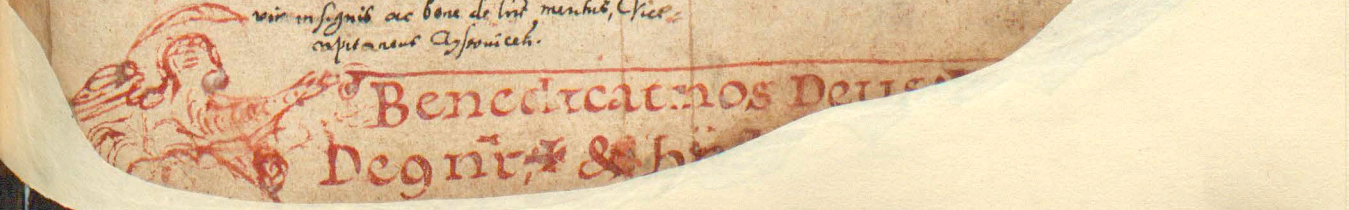 vir insignis ac bone de lris meritus, Vice-
capitaneus
Benedicat nos Deus
Deq nr, & b